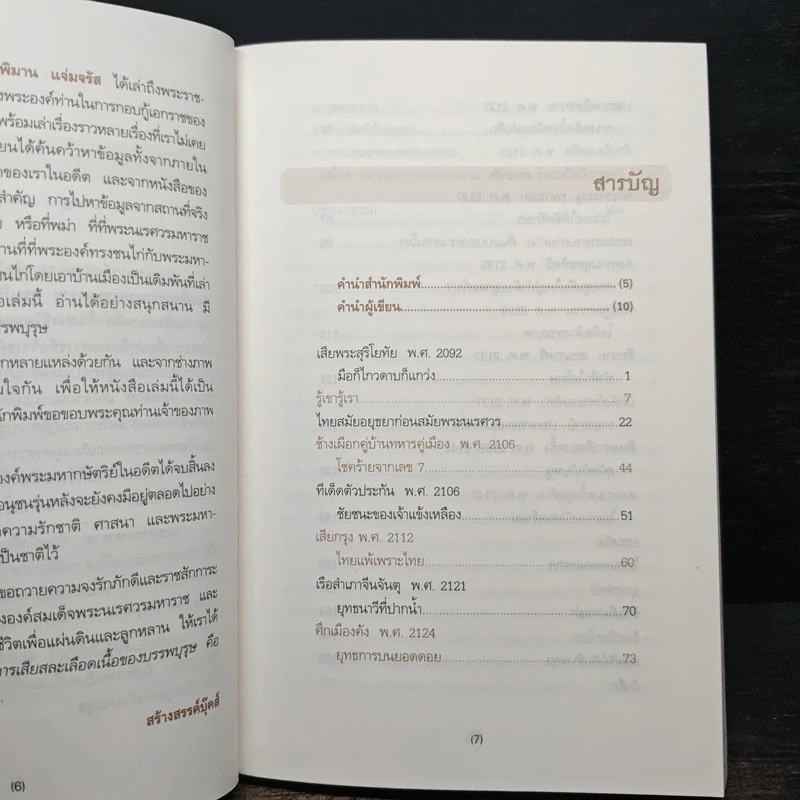 พิมาน แจ่มจรัส ได้เล่าถึงพระราช-
งพระองค์ท่านในการกอบกู้เอกราชของ
พร้อมเล่าเรื่องราวหลายเรื่องที่เราไม่เคย
ยนได้ค้นคว้าหาข้อมูลทั้งจากภายใน
าของเราในอดีต และจากหนังสือของ
สำคัญ การไปหาข้อมูลจากสถานที่จริง
ย หรือที่พม่า ที่ที่พระนเรศวรมหาราช
านที่ที่พระองค์ทรงชนไก่กับพระมหา-
ชนไก่โดยเอาบ้านเมืองเป็นเดิมพันที่เล่า
อเล่มนี้ อ่านได้อย่างสนุกสนาน มี
รรพบุรุษ
ากหลายแหล่งด้วยกัน และจากช่างภาพ
มใจกัน เพื่อให้หนังสือเล่มนี้ได้เป็น
นักพิมพ์ขอขอบพระคุณท่านเจ้าของภาพ
องค์พระมหากษัตริย์ในอดีตได้จบสิ้นลง
อนุชนรุ่นหลังจะยังคงมีอยู่ตลอดไปอย่าง
ความรักชาติ ศาสนา และพระมหา-
เป็นชาติไว้
ขอถวายความจงรักภักดีและราชสักการะ
องค์สมเด็จพระนเรศวรมหาราช และ
ชีวิตเพื่อแผ่นดินและลูกหลาน ให้เราได้
การเสียสละเลือดเนื้อของบรรพบุรุษ คือ
สร้างสรรค์บุ๊คส์
(6)
สารบัญ
คำนำสำนักพิมพ์ (5)
คำนำผู้เขียน (10)
เสียพระสุริโยทัย พ.ศ. 2092
มือก็ไกวดาบก็แกว่ง 1
รู้เขารู้เรา 7
ไทยสมัยอยุธยาก่อนสมัยพระนเรศวร 22
ช้างเผือกคู่บ้านทหารคู่เมือง พ.ศ. 2106
โชคร้ายจากเลข 7 44
ทีเด็ดตัวประกัน พ.ศ. 2106
ชัยชนะของเจ้าแข้งเหลือง 51
เสียกรุง พ.ศ. 2112
ไทยแพ้เพราะไทย 60
เรือสำเภาจีนจันตุ พ.ศ. 2121
ยุทธนาวีที่ปากน้ำ 70
ศึกเมืองคัง พ.ศ. 2124
ยุทธการบนยอดดอย 73
(7)